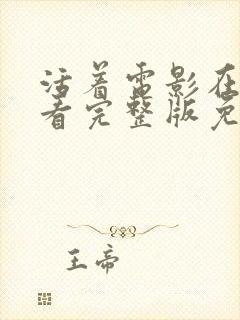 活着电影在
看完整版免
王帝